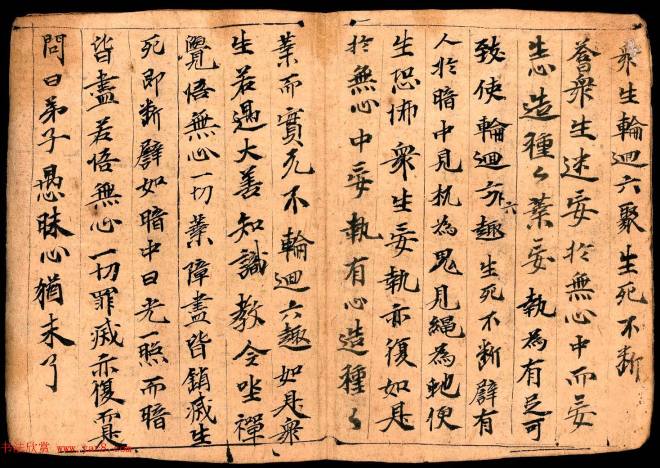 衆生輪迴六聚生死不斷
荅衆生迷妄於無心中而妄
生心造種々業妄執為有足可
致使輪迴六趣生死不斷譬有
人於暗中見杌為鬼見繩為虵便
生恐怖衆生妄執亦復如是
於無心中妄執有心造種々
業而實无不輪迴六趣如是衆
生若遇大善知識教令坐禪
覺悟無心一切業障盡皆銷滅生
死即斷譬如暗中日光一照而暗
皆盡若悟無心一切罪滅亦復如是
問曰弟子愚昧心猶未了
书法欣赏